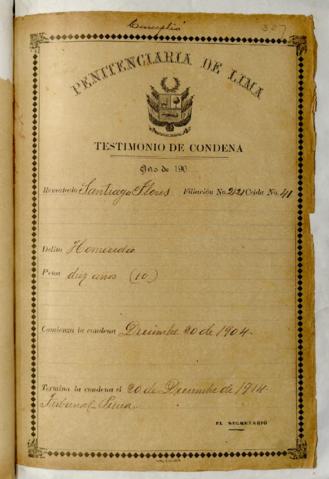 Cumplió
307
PENITENCIARIA DE LIMA
TESTIMONIO DE CONDENA
Año de 190
Rematado Santiago Flores Filiación No. 221 Celda No. 41
Delito Homicidio
Pena diez años (10)
Comienza la condena Diciembre 20 de 1904
Termina la condena el 20 de Diciembre de 1914
Tribunal Piura
EL SECRETARIO